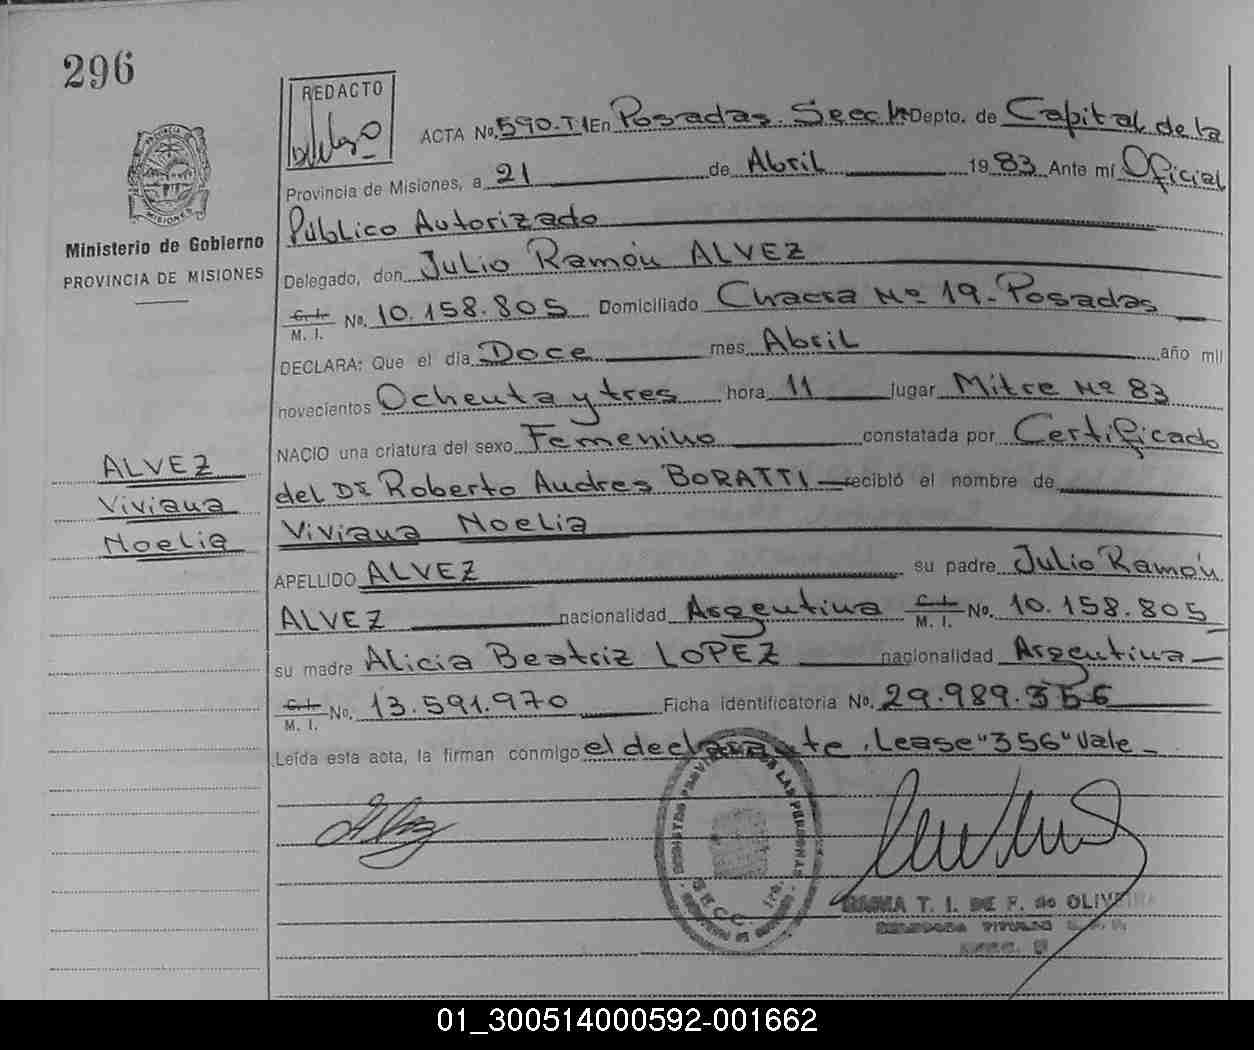 296
REDACTO
ACTA No. 590. T.I En Posadas. Secc Depto. de Capital de la
Provincia de Misiones, a 21 de Abril 1983 Ante mí Oficial
Público Autorizado
Delegado, don Julio Ramón ALVEZ
C. I.
M. I. No. 10.158.805 Domiciliado Chacra Nº 19-Posadas
DECLARA: Que el día Doce mes Abril año mil
novecientos Ochenta y tres hora 11 lugar Mitre Nº 83
NACIO una criatura del sexo Femenino constatada por Certificado
del Dr Roberto Andres BORATTI recibió el nombre de
Viviana Noelia
APELLIDO ALVEZ su padre Julio Ramón
ALVEZ nacionalidad Argentina C. I. M. I. No. 10.158.805
su madre Alicia Beatriz LOPEZ nacionalidad Argentina
C. I.
M. I. No. 13.591.970 Ficha identificatoria No. 29.989.356
Leída esta acta, la firman conmigo el declarante. Lease "356" Vale
MISIONES
Ministerio de Gobierno
PROVINCIA DE MISIONES
ALVEZ
Viviana
Noelia
REGISTRO PROVINCIAL DE LAS PERSONAS
T. I. DE F. de OLIVEIRA
01_300514000592-001662